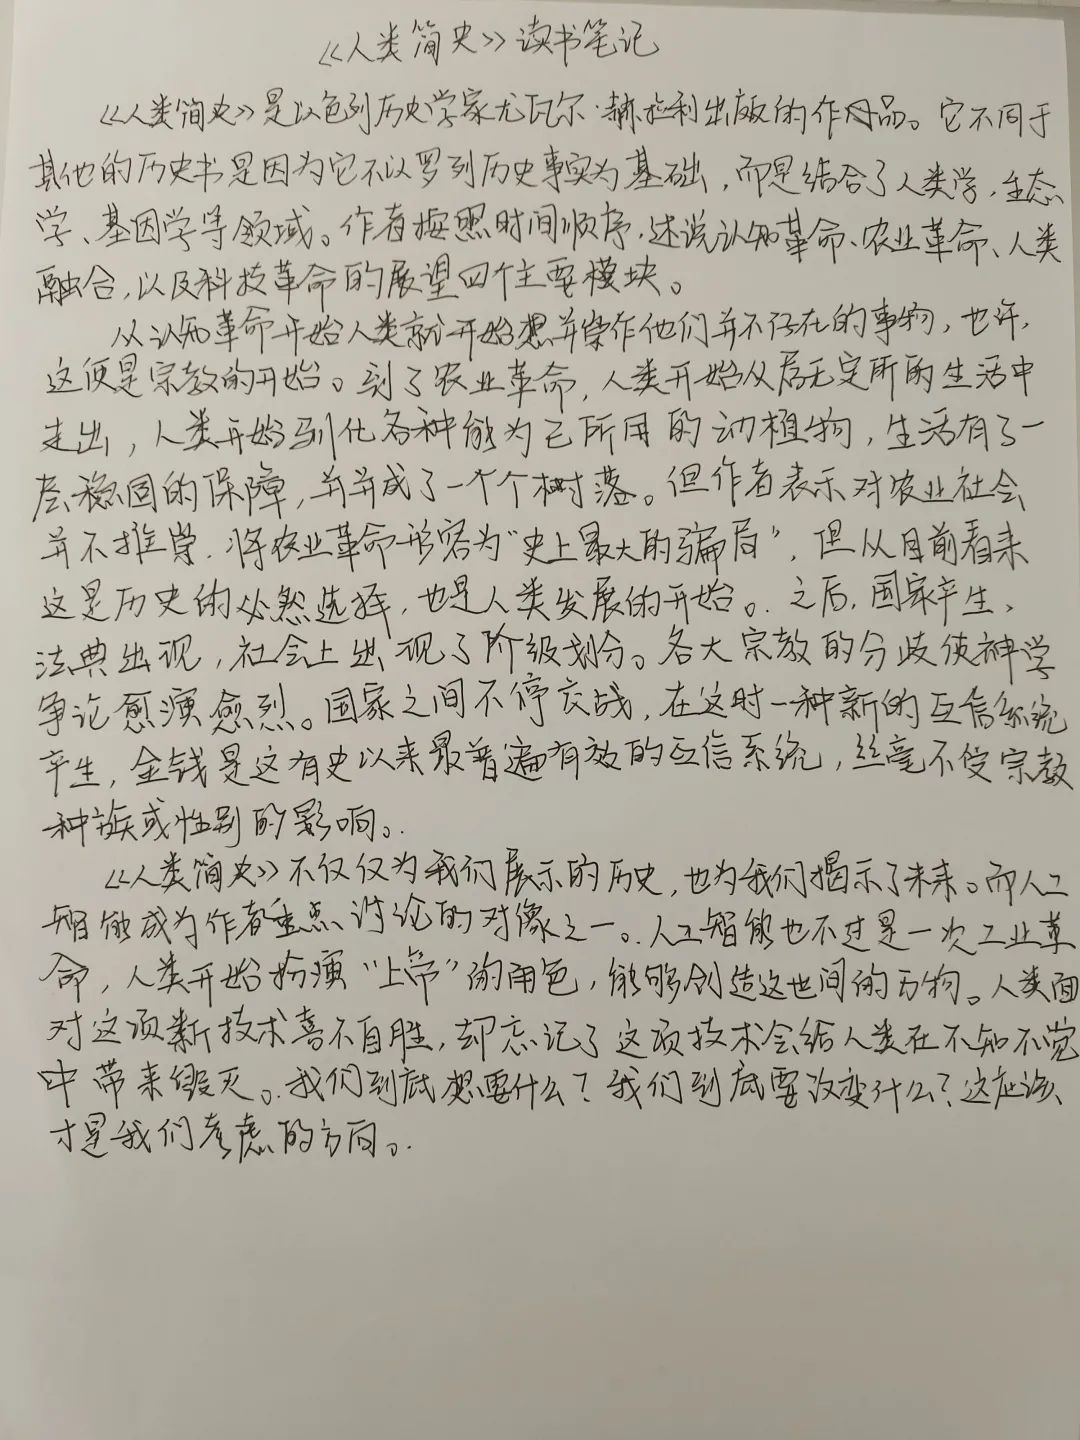 《人类简史》读书笔记
《人类简史》是以色列历史学家尤瓦尔·赫拉利出版的作品。它不同于
其他的历史书是因为它不以罗列历史事实为基础，而是结合了人类学，生态
学、基因学等领域。作者按照时间顺序，述说认知革命、农业革命、人类
融合，以及科技革命的展望四个主要模块。
从认知革命开始人类就开始想并崇作他们并不存在的事物，也许，
这便是宗教的开始。到了农业革命，人类开始从居无定所的生活中
走出，人类开始驯化各种能为己所用的动植物，生活有了一
层稳固的保障，并形成了一个个村落。但作者表示对农业社会
并不推崇，将农业革命形容为“史上最大的骗局”，但从目前看来
这是历史的必然选择，也是人类发展的开始。之后，国家产生，
法典出现，社会上出现了阶级划分。各大宗教的分歧使神学
争论愈演愈烈。国家之间不停交战，在这时一种新的互信系统
产生，金钱是这有史以来最普遍有效的互信系统，丝毫不受宗教
种族或性别的影响。
《人类简史》不仅仅为我们展示的历史，也为我们揭示了未来。而人工
智能成为作者重点讨论的对像之一。人工智能也不过是一次工业革
命，人类开始扮演“上帝”的角色，能够创造这世间的万物。人类面
对这项新技术喜不自胜，却忘记了这项技术会给人类在不知不觉
中带来毁灭。我们到底想要什么？我们到底要改变什么？这应该
才是我们考虑的方向。